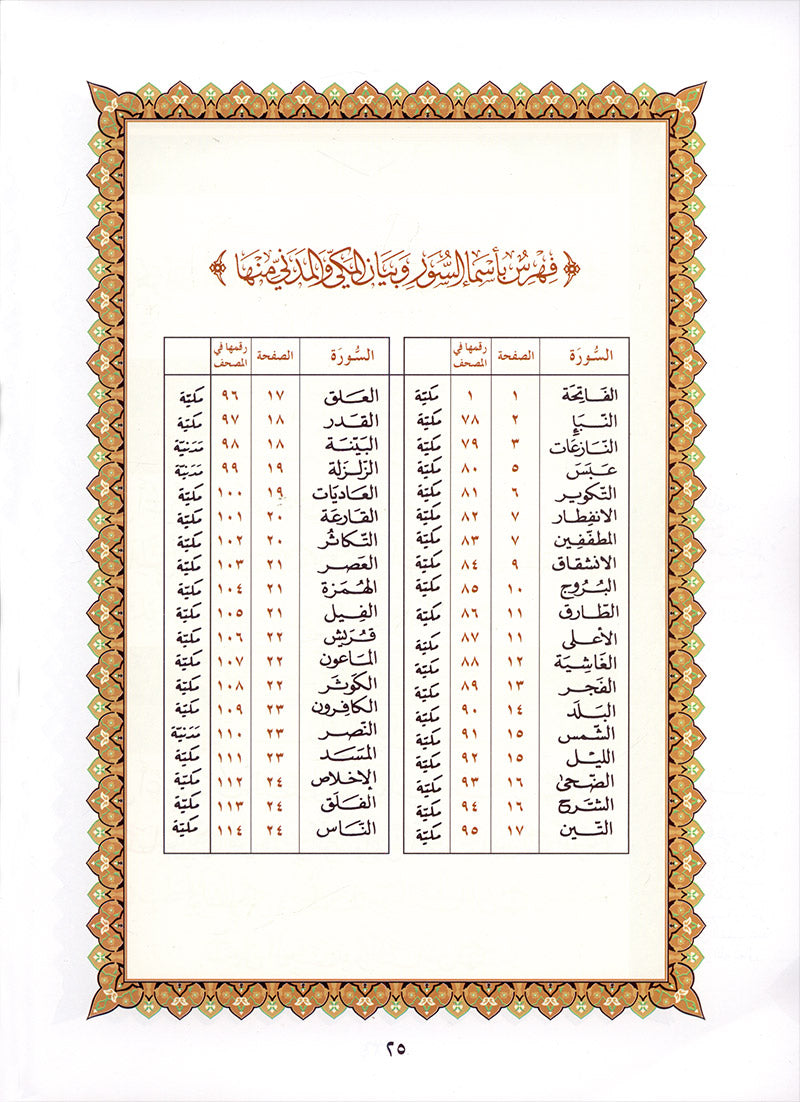 ﴿ فِهْرِسٌ بِأَسْمَاءِ السُّوَرِ وَبَيَانِ المَكِّيِّ وَالمَدَنِيِّ مِنْهَا ﴾
السُّورَة الصفحة رقمها في المصحف
الفَاتِحَة ١ ١ مكيّة
النَّبَإِ ٢ ٧٨ مكيّة
النَّازعَات ٣ ٧٩ مكيّة
عَبَسَ ٥ ٨٠ مكيّة
التّكوير ٦ ٨١ مكيّة
الانفِطار ٧ ٨٢ مكيّة
المطفّفِين ٧ ٨٣ مكيّة
الانشقاق ٩ ٨٤ مكيّة
البُرُوج ١٠ ٨٥ مكيّة
الطّارق ١١ ٨٦ مكيّة
الأعلى ١١ ٨٧ مكيّة
الغَاشِيَة ١٢ ٨٨ مكيّة
الفَجر ١٣ ٨٩ مكيّة
البَلَد ١٤ ٩٠ مكيّة
الشّمس ١٥ ٩١ مكيّة
الليْل ١٥ ٩٢ مكيّة
الضّحىٰ ١٦ ٩٣ مكيّة
الشّرح ١٦ ٩٤ مكيّة
التّين ١٧ ٩٥ مكيّة
السُّورَة الصفحة رقمها في المصحف
العَلق ١٧ ٩٦ مكيّة
القَدر ١٨ ٩٧ مكيّة
البَيّنَة ١٨ ٩٨ مَدَنيّة
الزّلزَلة ١٩ ٩٩ مَدَنيّة
العَاديَات ١٩ ١٠٠ مكيّة
القَارعَة ٢٠ ١٠١ مكيّة
التّكاثُر ٢٠ ١٠٢ مكيّة
العَصر ٢١ ١٠٣ مكيّة
الهُمَزة ٢١ ١٠٤ مكيّة
الفِيل ٢١ ١٠٥ مكيّة
قُرَيش ٢٢ ١٠٦ مكيّة
المَاعون ٢٢ ١٠٧ مكيّة
الكَوثَر ٢٢ ١٠٨ مكيّة
الكافِرون ٢٣ ١٠٩ مكيّة
النّصر ٢٣ ١١٠ مَدَنيّة
المَسَد ٢٣ ١١١ مكيّة
الإخلاص ٢٤ ١١٢ مكيّة
الفَلَق ٢٤ ١١٣ مكيّة
النَّاس ٢٤ ١١٤ مكيّة
٢٥